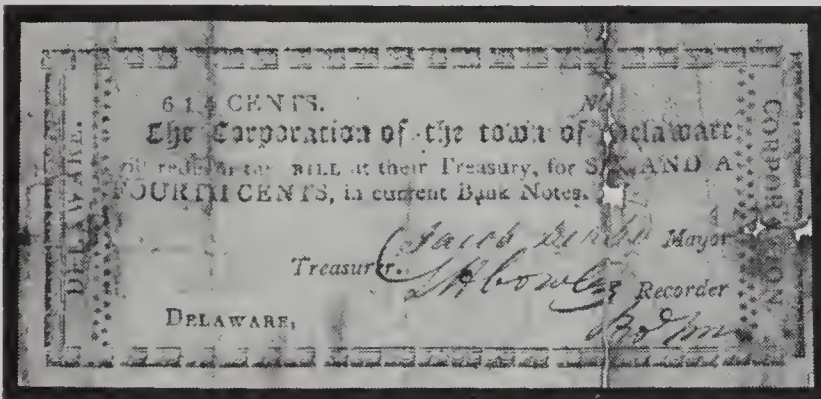 DELAWARE.
6 1 4 CENTS. No
The Corporation of the town of Delaware
will redeem this BILL at their Treasury, for SIX AND A
FOURTH CENTS, in current Bank Notes.
Jacob Mayor
Treasurer.
Recorder
DELAWARE,
CORPORATION